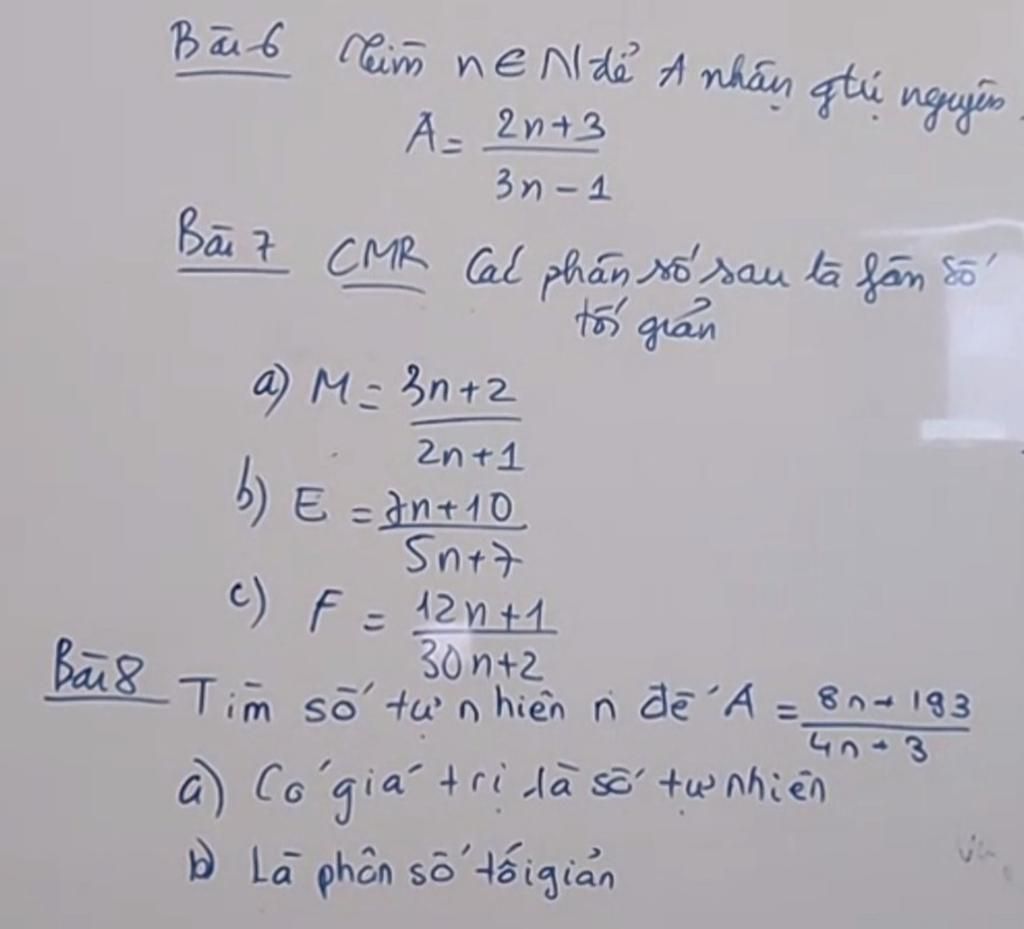 Bài 6 Tìm n ∈ N để A nhận gtrị nguyên.
A = (2n+3)/(3n-1)
Bài 7 CMR Các phân số sau là fân số
tối giản
a) M = (3n+2)/(2n+1)
b) E = (7n+10)/(5n+7)
c) F = (12n+1)/(30n+2)
Bài 8 Tìm số tự nhiên n để A = (8n+193)/(4n+3)
a) Có giá trị là số tự nhiên
b) Là phân số tối giản